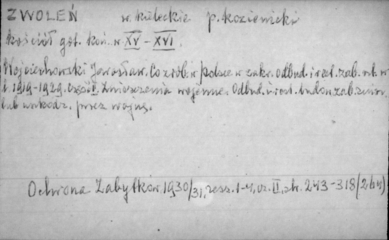 ZWOLEŃ w. kieleckie p. kozienicki
kościół got. kon. w XV - XVI.
Wojciechowski Jarosław. Co zrob. w Polsce w zakr. odbud. i rest. zab. arch. w
l. 1919-1929. Część I. Zniszczenia wojenne. Odbud. i rest. budow. zab. zniszcz.
lub uszkodz. przez wojnę.
Ochrona Zabytków. 1930/31, zesz. 1-4, cz. II, str. 243-318 (264)